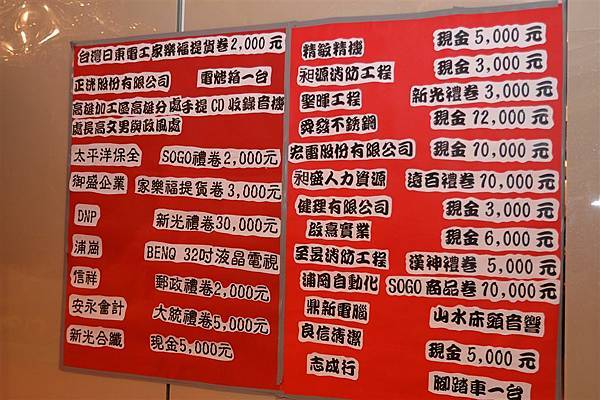 台灣日東電工家樂福提貨卷2,000元
正洸股份有限公司 電烤箱一台
高雄加工區高雄分處手提CD收錄音機
處長高文男與政風處
太平洋保全 SOGO禮卷2,000元
御盛企業 家樂福提貨卷3,000元
DNP 新光禮卷30,000元
浦崗 BENQ 32吋液晶電視
信祥 郵政禮卷2,000元
安永會計 大統禮卷5,000元
新光合纖 現金5,000元
精敏精機 現金5,000元
昶源消防工程 現金3,000元
聖暉工程 新光禮卷3,000元
舜發不銹鋼 現金12,000元
宏電股份有限公司 現金10,000元
昶盛人力資源 遠百禮卷10,000元
健理有限公司 現金3,000元
啟嘉實業 現金6,000元
至昱消防工程 漢神禮卷5,000元
浦岡自動化 SOGO商品卷10,000元
鼎新電腦 山水床頭音響
良信清潔 現金5,000元
志成行 腳踏車一台